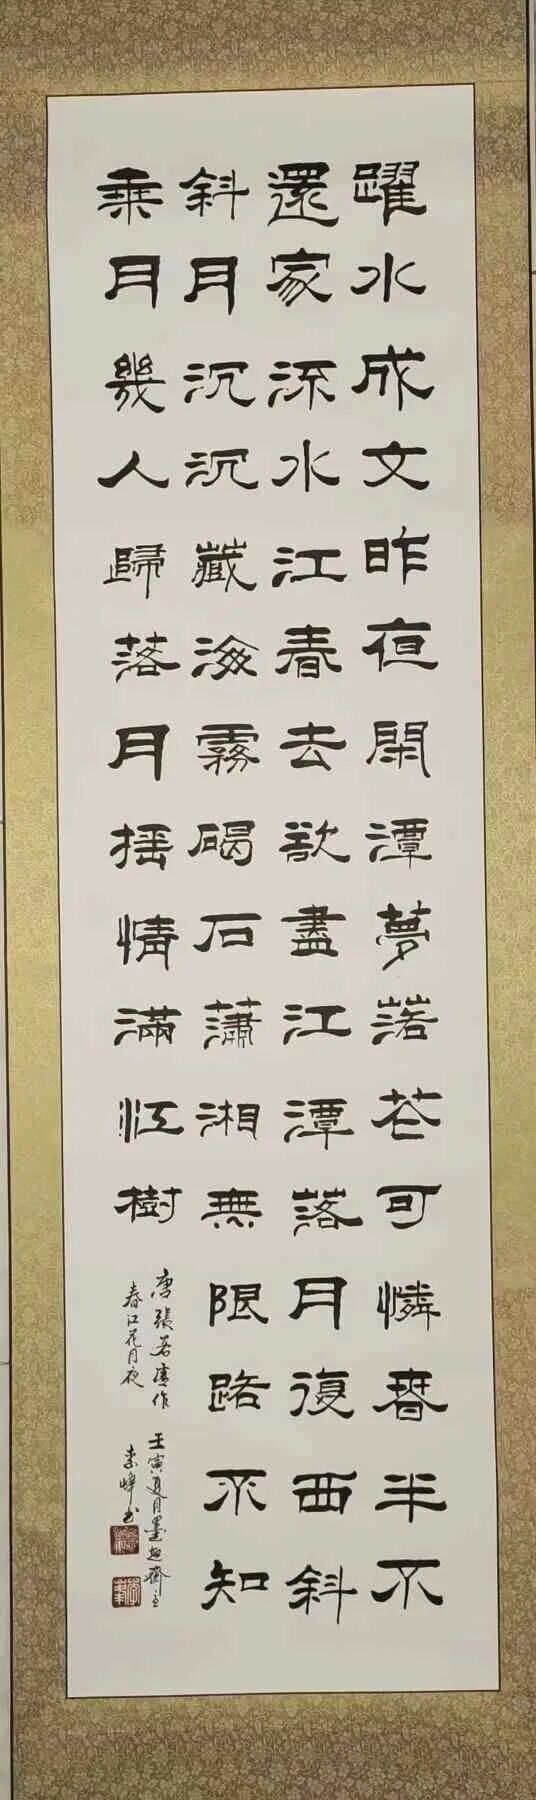 躍水成文昨夜閑潭夢落花可憐春半不
還家流水江春去欲盡江潭落月復西斜
斜月沉沉藏海霧碣石蕭湘無限路不知
乘月幾人歸落月搖情滿江樹
唐張若虛作
春江花月夜
壬寅夏月墨趣齋主
素峰书